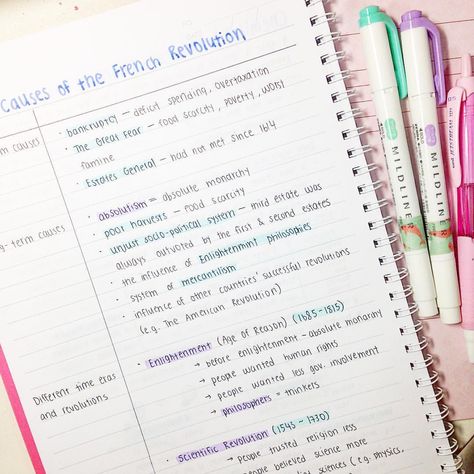 Causes of the French Revolution
m causes
· bankruptcy – deficit spending, overtaxation
· The Great Fear – food scarcity, poverty, worst
famine
· Estates General – had not met since 1614
g-term causes
· absolutism = absolute monarchy
· poor harvests – food scarcity
· unjust socio-political system – third estate was
always outvoted by the first & second estates
· the influence of Enlightenment philosophies
· system of mercantilism
· influence of other countries' successful revolutions
(e.g. The American Revolution)
Different time eras
and revolutions
· Enlightenment (Age of Reason) (1685-1815)
→ before enlightenment – absolute monarchy
→ people wanted human rights
→ people wanted less gov. involvement
→ philosophers = thinkers
· Scientific Revolution (1543 - 1730)
→ people trusted religion less
people believed science more
(e.g. physics,
MILDLINER
MILDLINER